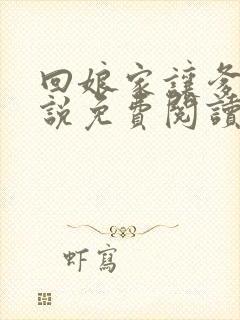 回娘家讓爹
說免費閱讀
虾寫